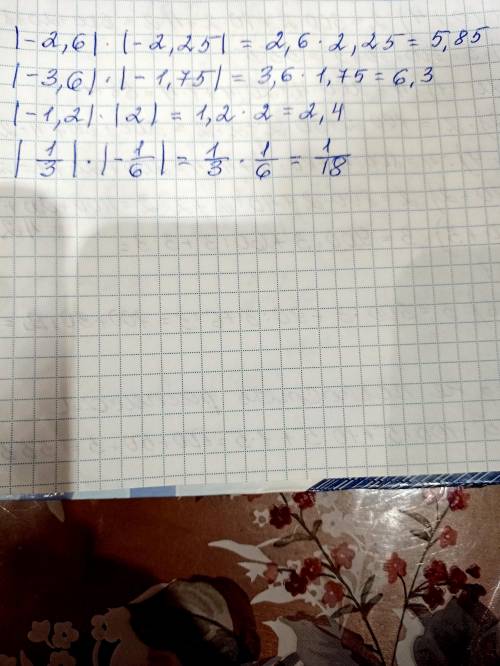 |-2,6| · |-2,25| = 2,6 · 2,25 = 5,85
|-3,6| · |-1,75| = 3,6 · 1,75 = 6,3
|-1,2| · |2| = 1,2 · 2 = 2,4
|1/3| · |-1/6| = 1/3 · 1/6 = 1/18